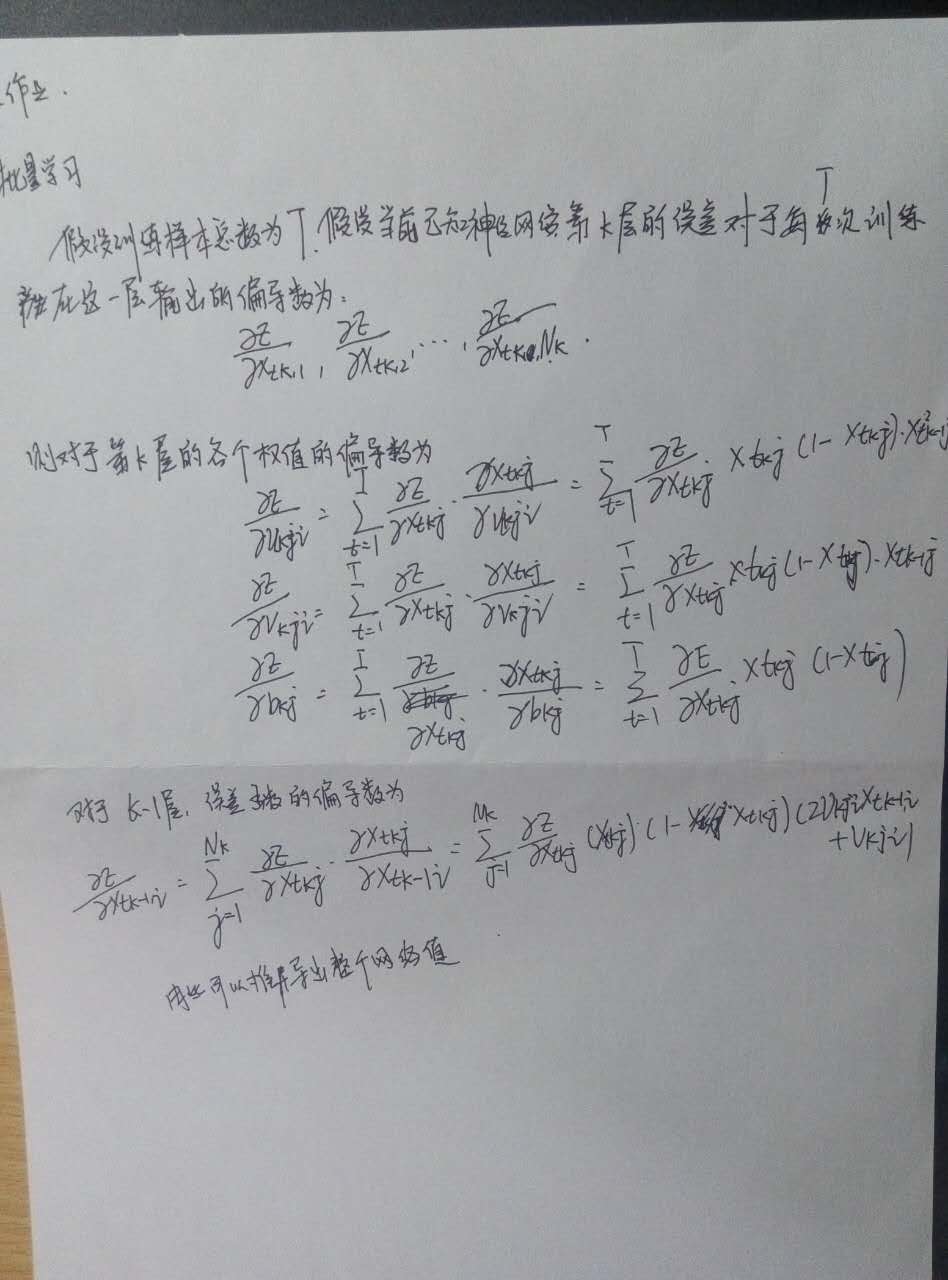 作业.
批量学习
T
假设训练样本总数为T,假设当前已知神经网络第k层的误差对于每次训练
在这一层输出的偏导数为:
∂E/∂x_{tk,1}, ∂E/∂x_{tk,2}, ..., ∂E/∂x_{tk,N_k}.
则对于第k层的各个权值的偏导数为
∂E/∂u_{kji} = Σ_{t=1}^{T} ∂E/∂x_{tkj} · ∂x_{tkj}/∂u_{kji} = Σ_{t=1}^{T} ∂E/∂x_{tkj} · x_{tkj}(1-x_{tkj})·x²_{tk-1j}
∂E/∂v_{kji} = Σ_{t=1}^{T} ∂E/∂x_{tkj} · ∂x_{tkj}/∂v_{kji} = Σ_{t=1}^{T} ∂E/∂x_{tkj} x_{tkj}(1-x_{tkj})·x_{tk-1j}
∂E/∂b_{kj} = Σ_{t=1}^{T} ∂E/∂x_{tkj} · ∂x_{tkj}/∂b_{kj} = Σ_{t=1}^{T} ∂E/∂x_{tkj} x_{tkj}(1-x_{tkj})
对于k-1层,误差函数的偏导数为
∂E/∂x_{tk-1i} = Σ_{j=1}^{N_k} ∂E/∂x_{tkj} · ∂x_{tkj}/∂x_{tk-1i} = Σ_{j=1}^{N_k} ∂E/∂x_{tkj} (x_{tkj})·(1-x_{tkj})(2u_{kji}x_{tk-1i}+v_{kji})
由此可以推导出整个网络值